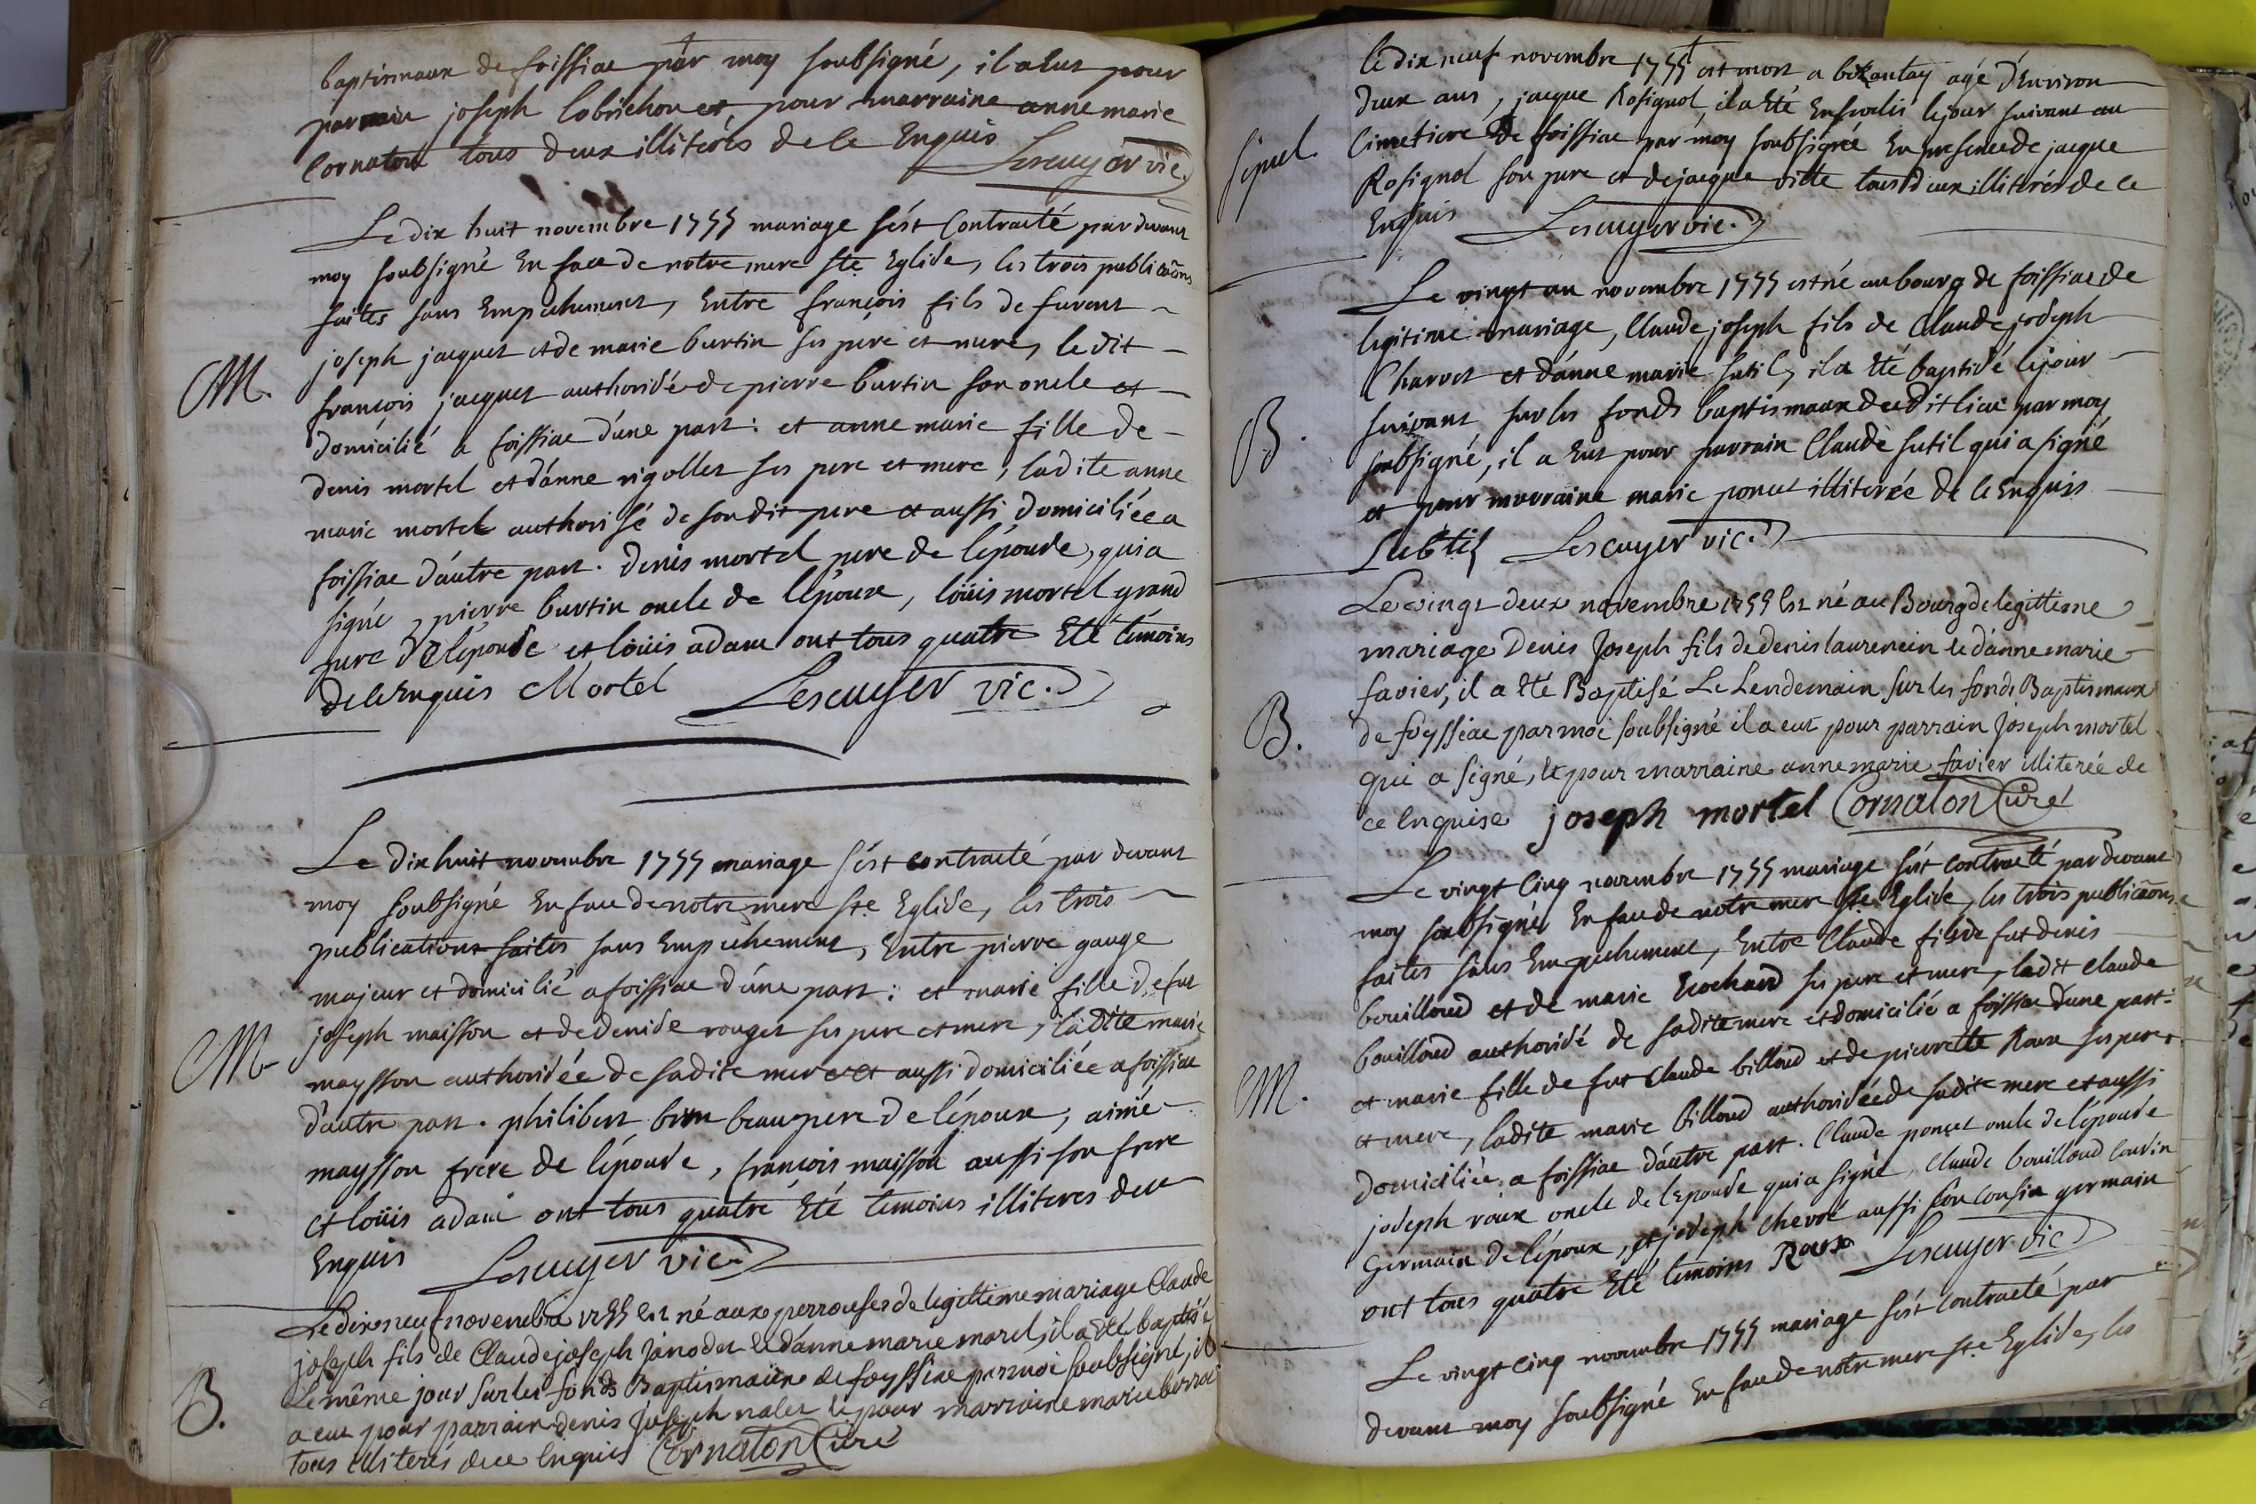 baptismaux de foissiac par moy soubsigné, il a eut pour
parrain joseph lobrichon et pour marraine anne marie
Cornaton tous deux illiterés de ce Enquis
Lescuyer vic.
Le dix huit novembre 1755 mariage s'est Contracté par devant
moy soubsigné En face de notre mere ste Eglise, les trois publicãons
faites sans Empechement, Entre françois fils de fut
joseph jacquet et de marie burtin ses pere et mere, le dit
M. françois jacquet authorisé de pierre burtin son oncle et
domicilié a foissiac d'une part : et anne marie fille de
denis mortel et d'anne rigollet ses pere et mere, ladite anne
marie mortel authorisé de son dit pere et aussi domiciliée a
foissiac d'autre part. Denis mortel pere de l'épouse, qui a
signé, pierre burtin oncle de l'époux, loüis mortel grand
pere de l'épouse et loüis adam ont tous quatre Eté temoins
de ce Enquis Mortel Lescuyer vic.
Le dix huit novembre 1755 mariage s'est contracté par devant
moy soubsigné En face de notre mere ste Eglise, les trois
publications faites sans Empechement, Entre pierre gauge
majeur et domicilié a foissiac d'une part : et marie fille de fut
M joseph maisson et de denise rouget ses pere et mere, ladite marie
maysson authorisée de sadite mere et aussi domiciliée a foissiac
d'autre part. philibert beau pere de l'époux, aimé
maysson frere de l'épouse, françois maisson aussi son frere
et loüis adam ont tous quatre Eté temoins illiteres de ce
Enquis Lescuyer vic.
Le dix neuf novembre 1755 Est né aux perrouses de legittime mariage Claude
joseph fils de Claude joseph janodet et d'anne marie morel, il a Eté baptisé
Le même jour sur les fonds Baptismaux de foyssiac par moi soubsigné, il
B. a eut pour parrain denis joseph nalet et pour marraine marie
tous illiterés de ce Enquis Cornaton Curé
le dix neuf novembre 1755 est mort a agé d'Environ
deux ans, jacque Rosignol il a Eté Enseveli le jour suivant au
Sepul. Cimetiere de foissiac par moy soubsigné En presence de jacque
Rosignol son pere et de jacque vitte tous deux illiterés de ce
Enquis Lescuyer vic.
Le vingt un novembre 1755 est né au bourg de foissiac de
legitime mariage, Claude joseph fils de Claude joseph
Charvet et d'anne marie sutil, il a Eté baptisé le jour
B. suivant sur les fonds baptismaux du dit lieu par moy
soubsigné, il a Eut pour parrain Claude sutil qui a signé
et pour marraine marie poncet illiterée de ce Enquis
Subtil Lescuyer vic.
Le vingt deux novembre 1755 Est né au Bourg de legittime
mariage Denis Joseph fils de denis laurencin et d'anne marie
favier, il a Eté Baptisé Le Lendemain sur les fonds Baptismaux
B. de foyssiac par moi soubsigné il a eut pour parrain Joseph mortel
qui a signé, et pour marraine anne marie favier illiterée de
ce Enquise joseph mortel Cornaton Curé
Le vingt Cinq novembre 1755 mariage s'est contracté par devant
moy soubsigné En face de notre mere ste Eglise, les trois publicãons
faites sans Empechement, Entre Claude fils de fut denis
bouilloud et de marie Ecochard ses pere et mere, ledit Claude
bouilloud authorisé de sadite mere et domicilié a foissiac d'une part :
M. et marie fille de fut Claude billoud et de pierrette Roux ses pere
et mere, ladite marie billoud authorisée de sadite mere et aussi
domiciliée a foissiac d'autre part. Claude ponçet oncle de l'épouse
joseph roux oncle de l'epouse qui a signé, Claude bouilloud Cousin
Germain de l'époux, et joseph Chevré aussi son Cousin germain
ont tous quatre Eté temoins Roux Lescuyer vic
Le vingt Cinq novembre 1755 mariage s'est contracté par
devant moy soubsigné En face de notre mere ste Eglise, les